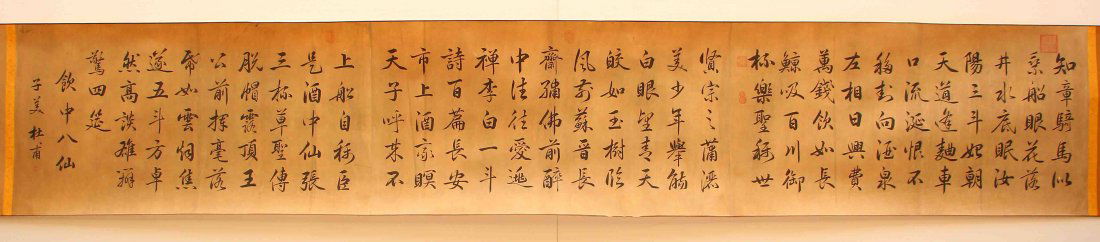 知章騎馬似
乘船眼花落
井水底眠汝
陽三斗始朝
天道逢麯車
口流涎恨不
移封向酒泉
左相日興費
萬錢飲如長
鯨吸百川銜
杯樂聖稱世
賢宗之蕭灑
美少年舉觴
白眼望青天
皎如玉樹臨
風前蘇晉長
齋繡佛前醉
中往往愛逃
禪李白一斗
詩百篇長安
市上酒家眠
天子呼來不
上船自稱臣
是酒中仙張
三杯草聖傳
脫帽露頂王
公前揮毫落
帋如雲烟焦
遂五斗方卓
然高談雄辯
驚四筵
飲中八仙
子美杜甫